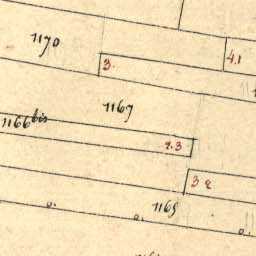 1170
3.
41
1167
1166 bis
2.3
32
1169